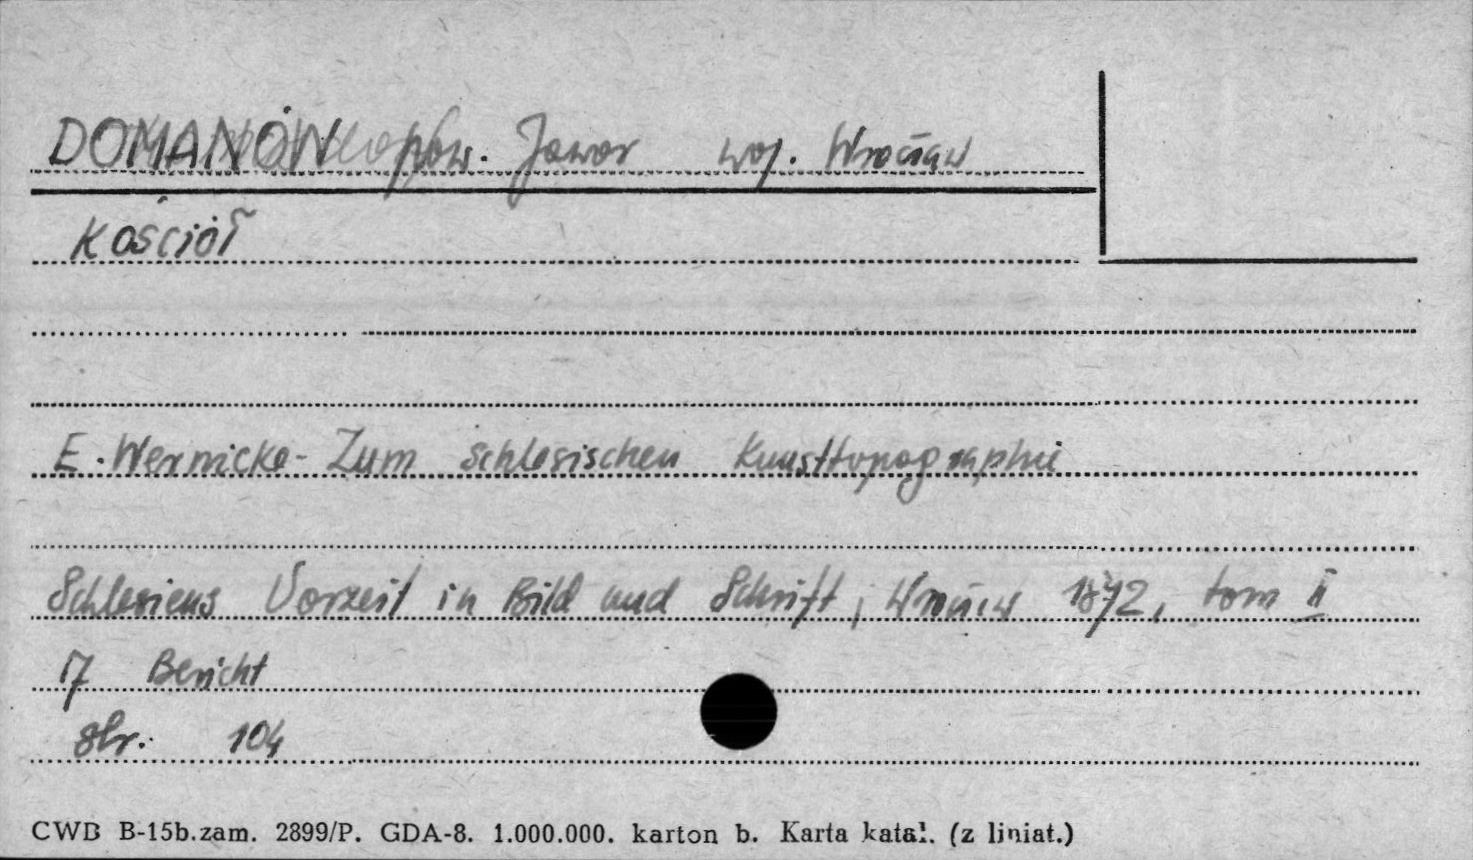 DOMANÓW pow. Jawor woj. Wrocław
Kościół
E. Wernicke - Zum schlesischen Kunsttopographie
Schlesiens Vorzeit in Bild und Schrift, Wrocław 1872, tom II
17 Bericht
str. 104
CWB B-15b.zam. 2899/P. GDA-8. 1.000.000. karton b. Karta katal. (z liniat.)